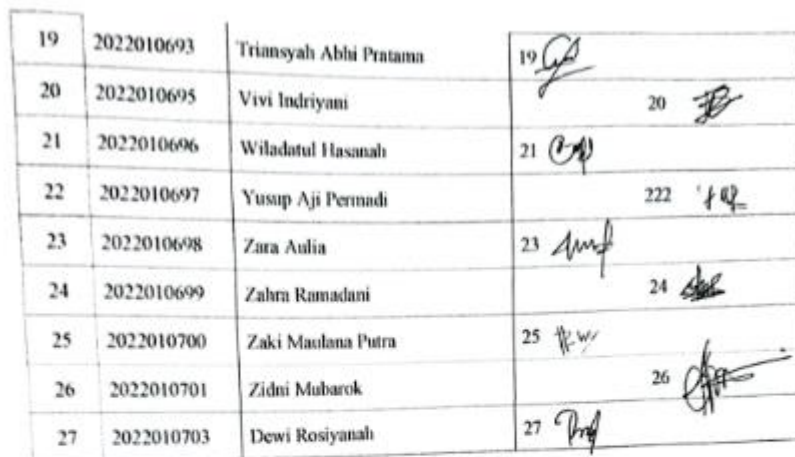 19 2022010693 Triansyah Abhi Pratama 19
20 2022010695 Vivi Indriyani 20
21 2022010696 Wiladatul Hasanah 21
22 2022010697 Yusup Aji Permadi 222
23 2022010698 Zara Aulia 23
24 2022010699 Zahra Ramadani 24
25 2022010700 Zaki Maulana Putra 25
26 2022010701 Zidni Mubarok 26
27 2022010703 Dewi Rosiyanah 27